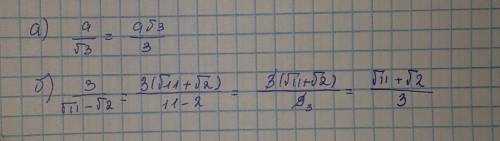 а) a/√3 = a√3/3
б) 3/(√11-√2) = 3(√11+√2)/(11-2) = 3(√11+√2)/9₃ = (√11+√2)/3